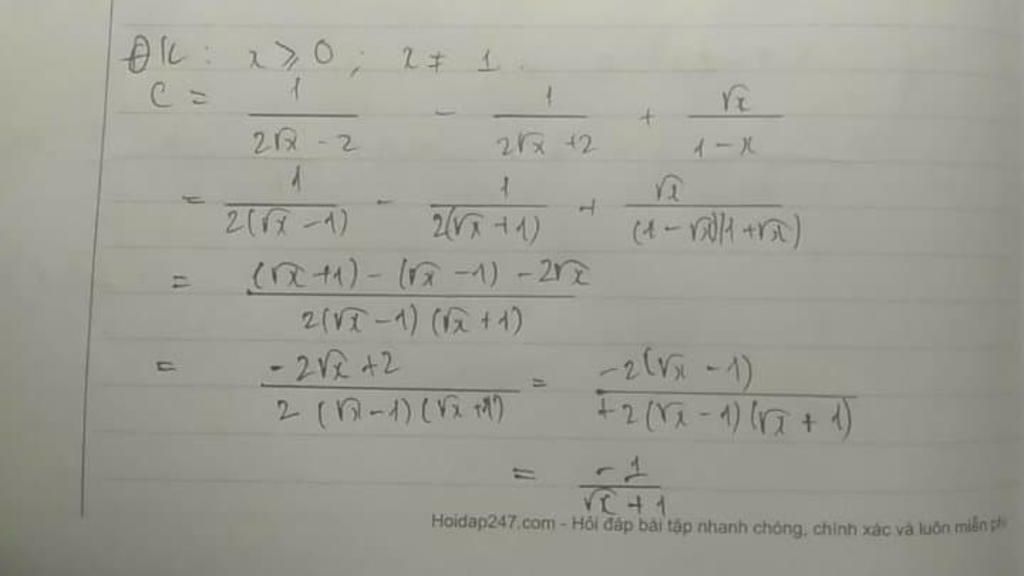 ĐK: x ≥ 0; x ≠ 1.
C = 1/(2√x - 2) - 1/(2√x + 2) + √x/(1 - x)
= 1/(2(√x - 1)) - 1/(2(√x + 1)) + √x/((1 - √x)(1 + √x))
= ((√x + 1) - (√x - 1) - 2√x)/(2(√x - 1)(√x + 1))
= (-2√x + 2)/(2(√x - 1)(√x + 1)) = (-2(√x - 1))/(+2(√x - 1)(√x + 1))
= -1/(√x + 1)
Hoidap247.com - Hỏi đáp bài tập nhanh chóng, chính xác và luôn miễn phí